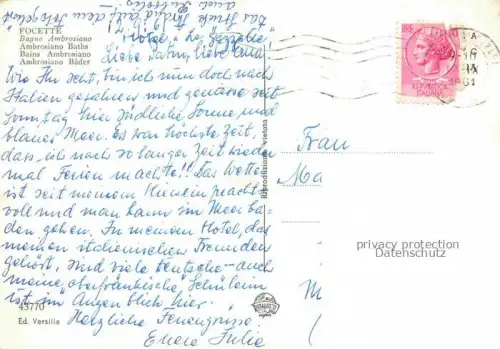 FOCETTE
Bagno Ambrosiano
Ambrosiano Baths
Bains Ambrosiano
Ambrosiano Bäder
Hotel "La Gazelle"
Liebe liebe
Wie Ihr seht, bin ich nun doch nach
Italien gefahren und geniesse seit
Sonntag hier südliche Sonne und
blaues Meer. Es war höchste Zeit,
dass ich nach so langer Zeit wieder
mal Ferien machte!! Das Wetter
ist seit meinem Hiersein pracht-
voll und man kann im Meer ba-
den gehen. In meinem Hotel, das
meinen italienischen Freunden
gehört, sind viele Deutsche - auch
meine "oberfränkische" Schülerin
ist im Augenblick hier.
Herzliche Feriengrüsse
Euere Julie
43770
Ed. Versilia
Riproduzione vietata
Frau
Ma
M
(
privacy protection
Datenschutz